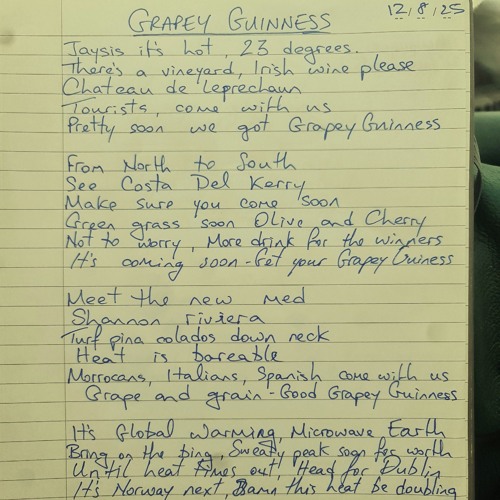 GRAPEY GUINNESS
12/8/25
Jaysis it's hot, 23 degrees.
There's a vineyard, Irish wine please
Chateau de Leprechaun
Tourists, come with us
Pretty soon we got Grapey Guinness
From North to South
See Costa Del Kerry
Make sure you come soon
Green grass soon Olive and Cherry
Not to worry, More drink for the winners
It's coming soon - Get your Grapey Guiness
Meet the new med
Shannon riviera
Turf pina colados down neck
Heat is bareable
Morrocans, Italians, Spanish come with us
Grape and grain - Good Grapey Guinness
It's Global Warming, Microwave Earth
Bring on the ping, Sweaty peak soon for worth
Until heat times out, Head for Dublin
It's Norway next, Damn this heat be doubling